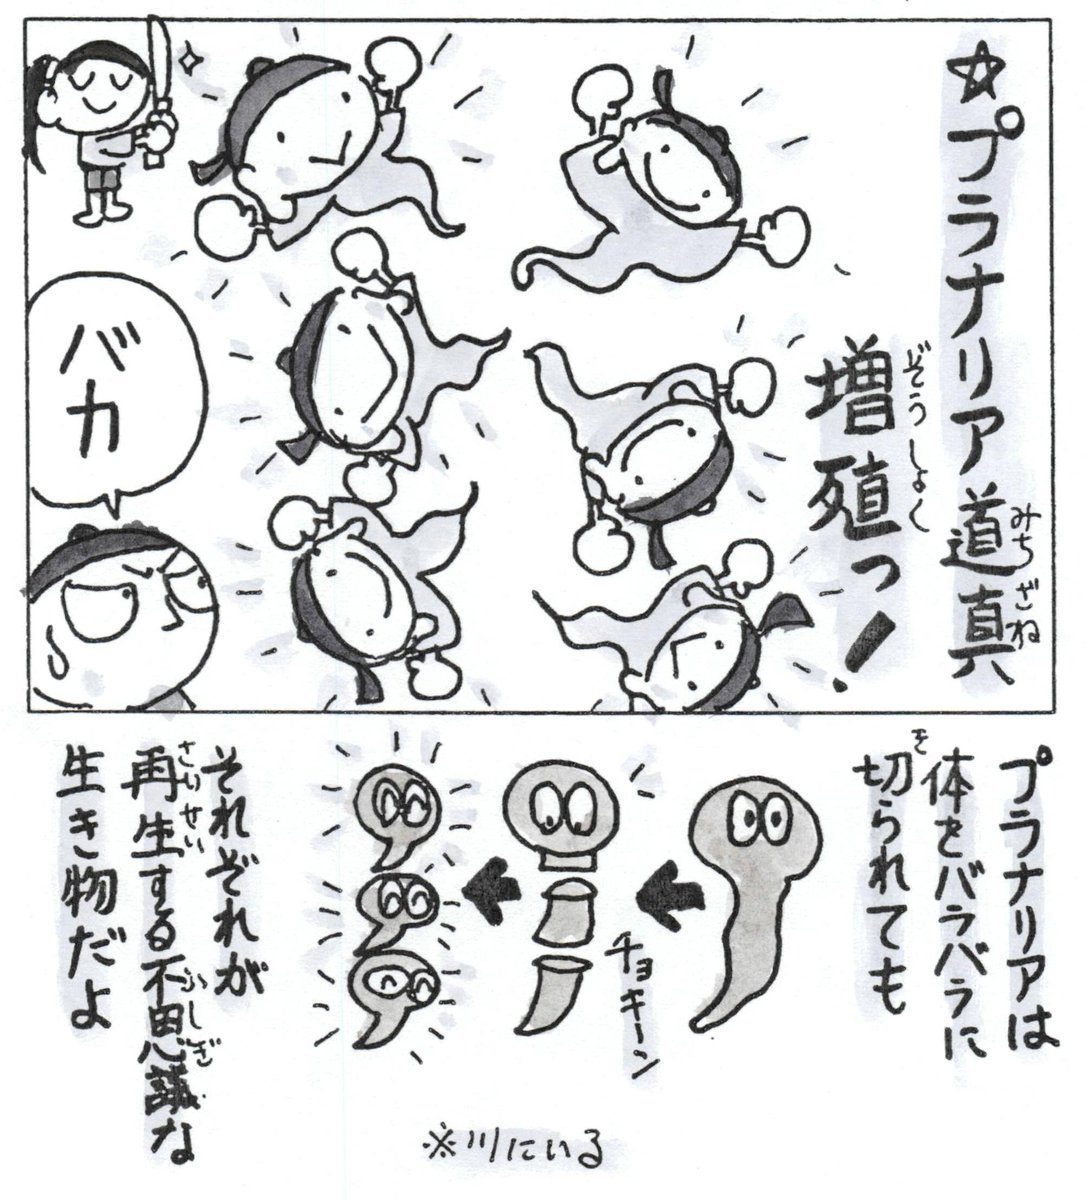 ☆プラナリア道真
みちざね
増殖っ!
ぞうしょく
バカ
プラナリアは
体をバラバラに
切られても
き
チョキーン
それぞれが
再生する不思議な
さいせい
ふしぎ
生き物だよ
※川にいる